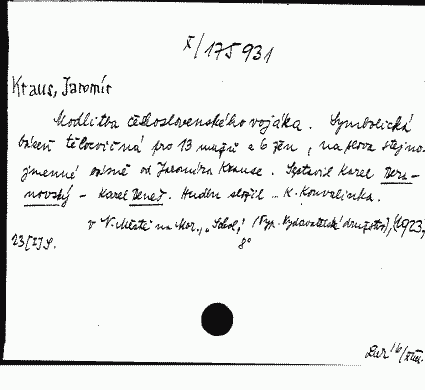 X/175931
Kraus, Jaromír
Modlitba československého vojáka. Symbolická
báseň tělocvičná pro 13 mužů a 6 žen, na slova stejno-
jmenné básně od Jaromíra Krause. Sestavil Karel Bera-
novský - Karel Beneš. Hudbu složil ... K. Konvalinka.
v N. Městě na Mor., "Sokol," (Typ. Vydavatelské družstvo), (1923,
23 [I] S. 8°
Dur 16/XIII.